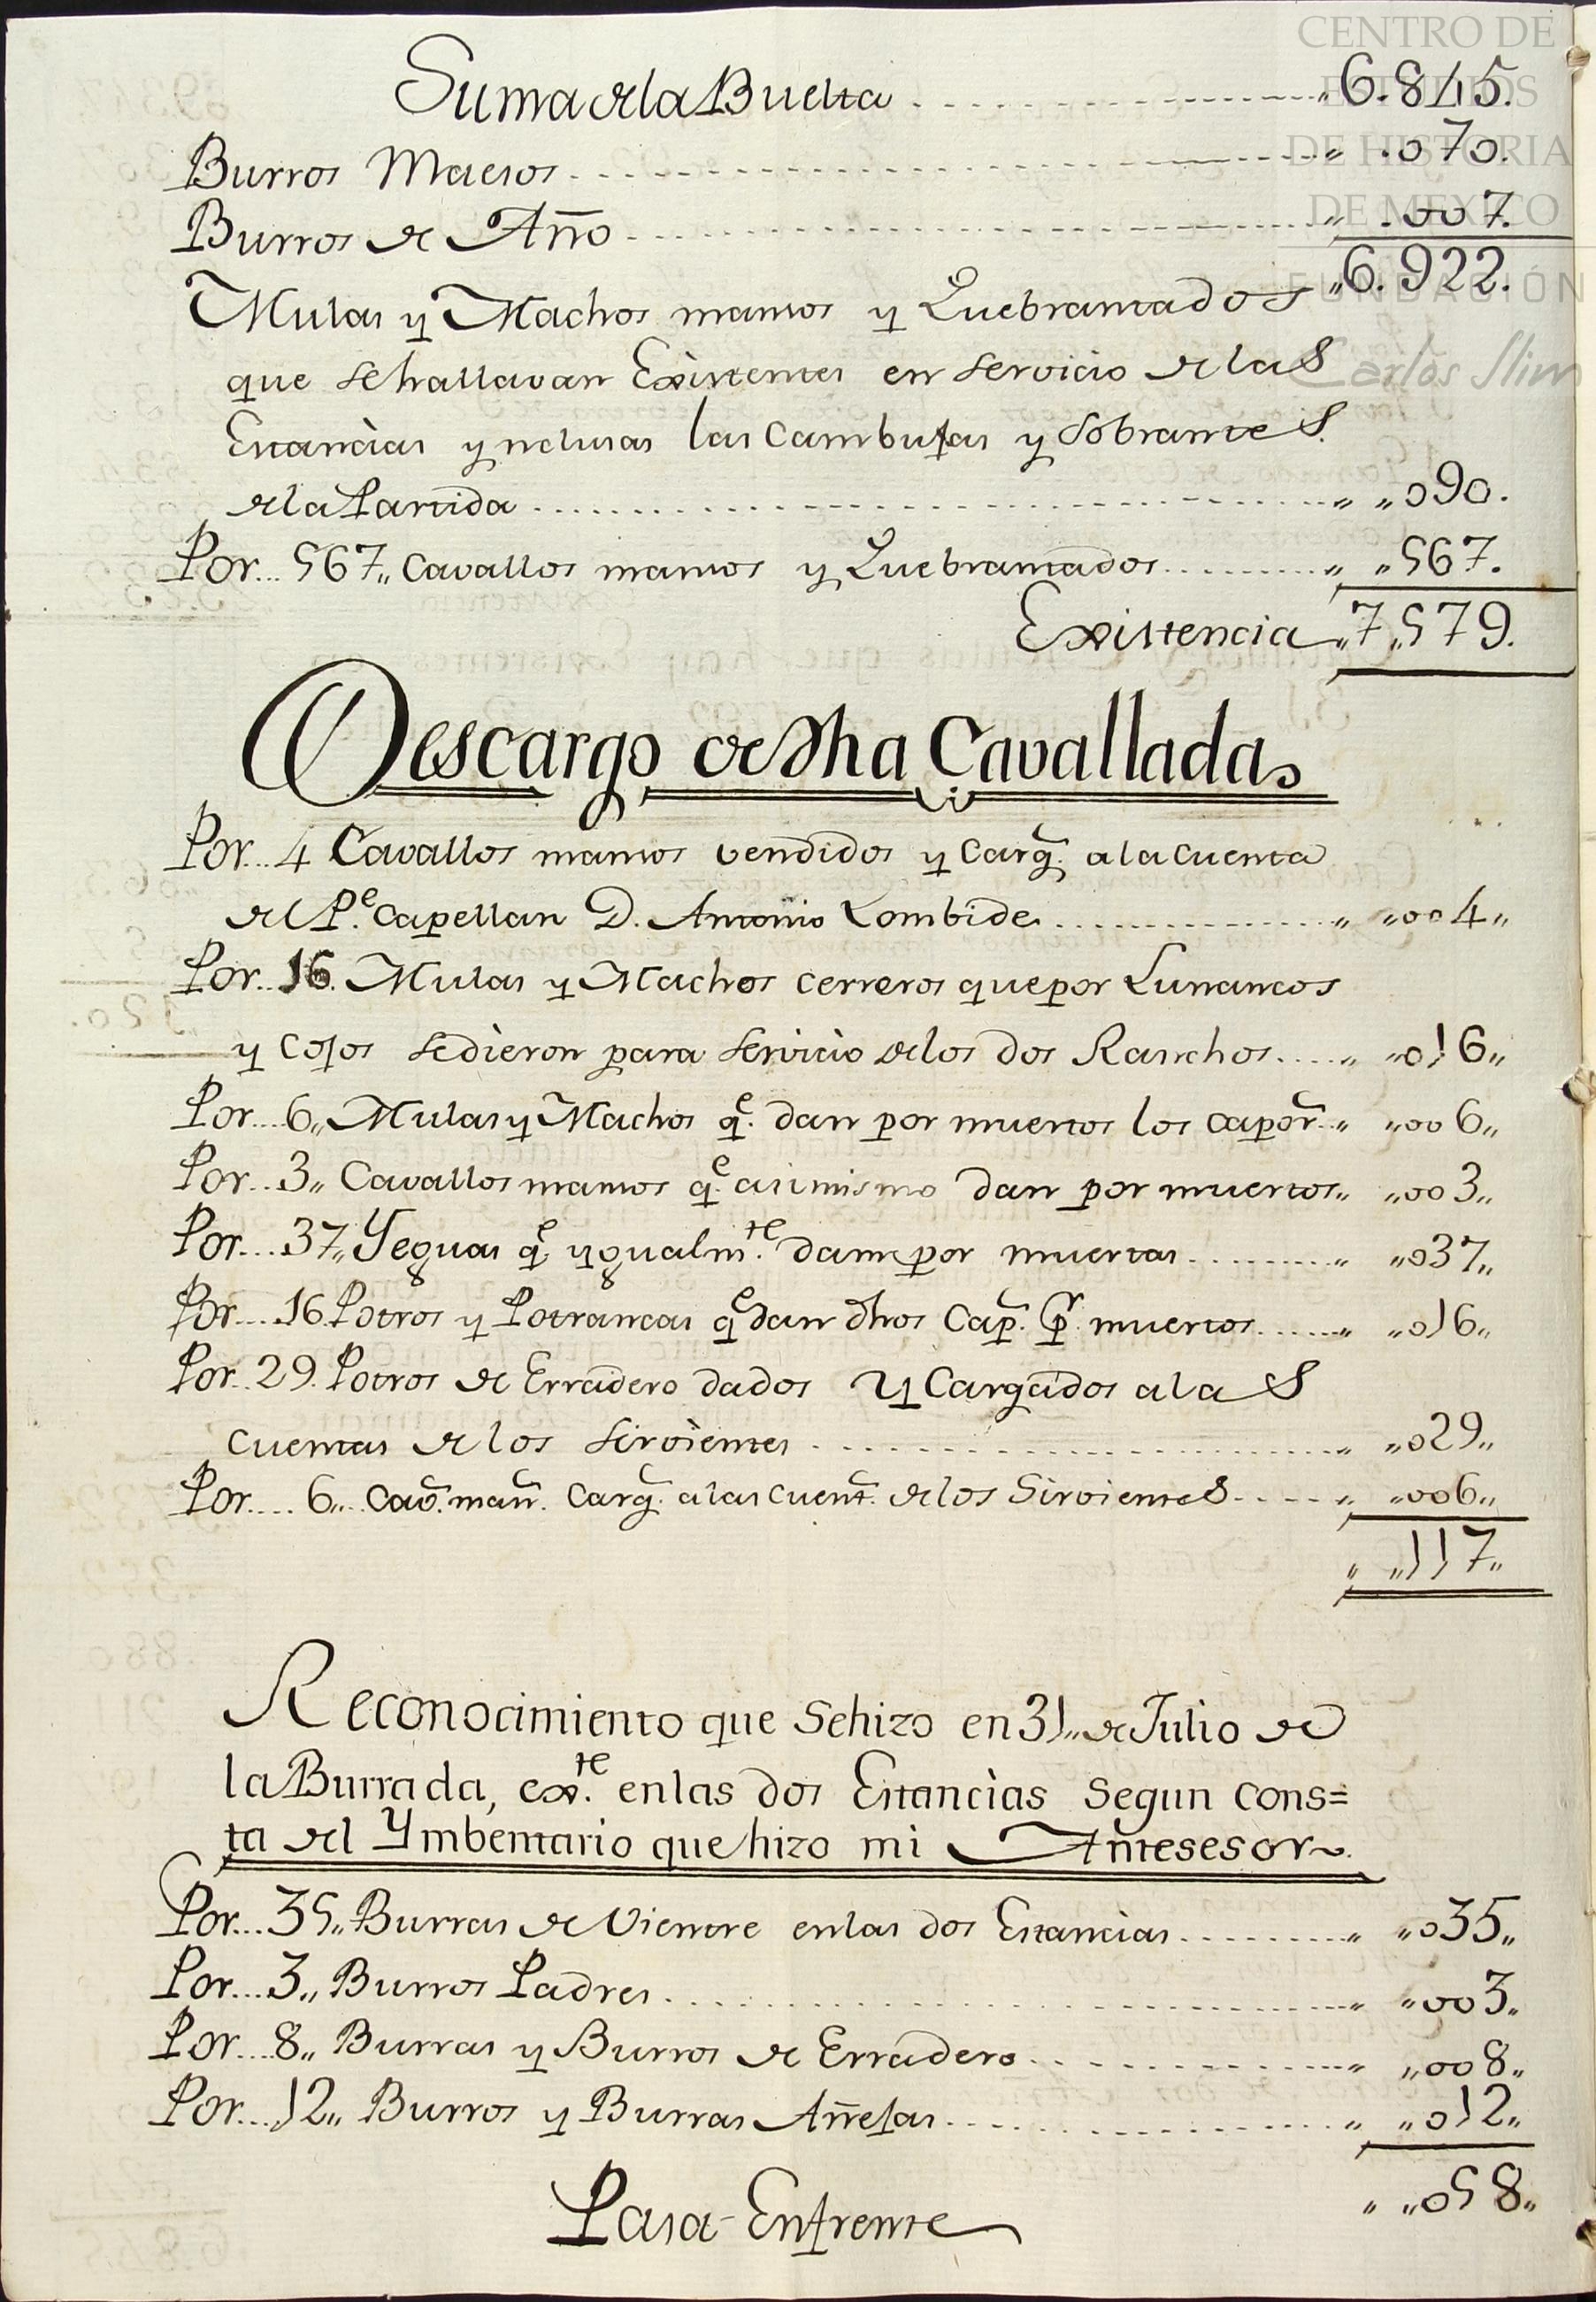 CENTRO DE
ESTUDIOS
DE HISTORIA
DE MEXICO
FUNDACIÓN
Carlos Slim
Suma de la Buelta ,, 6.845.
Burros Maesos ,, .070.
Burros de Año ,, .007.
,, 6.922.
Mulas y Machos mansos y Quebrantados
que se hallavan Existentes en servicio de las
Estancias ynclusas las Cambujas y Sobrantes.
de la Partida ,, ,,090.
Por... 567,, Cavallos mansos y Quebrantados ,, ,,567.
Existencia ,,7,,579.
Descargo de dha Cavallada
Por... 4 Cavallos mansos vendidos y Carg.s a la cuenta
del P.e Capellan D. Antonio Lombide ,, ,,004,,
Por.. 16. Mulas y Machos cerreros que por Lunancos
y Cojos se dieron para servicio de los dos Ranchos ,, ,,016,,
Por... 6,, Mulas y Machos q.e dan por muertos los capor.s ,, ,,006,,
Por... 3,, Cavallos mansos q.e asimismo dan por muertos ,, ,,003,,
Por... 37,, Yeguas q.e ygualm.te dann por muertas ,, ,,037,,
Por.... 16. Potros y Potrancas q.e dan dhos Cap.s p.r muertos ,, ,,016,,
Por.. 29. Potros de Erradero dados y Cargados a las
cuentas de los sirvientes ,, ,,029,,
Por.... 6,, Cav.s man.s Carg.s a las cuent.s de los Sirvientes ,, ,,006,,
,, ,,117,,
Reconocimiento que se hizo en 31,, de Julio de
la Burrada, ex.te en las dos Estancias segun cons=
ta del Ymbentario que hizo mi Antesesor
Por... 35,, Burras de Vientre en las dos Estancias ,, ,,035,,
Por... 3,, Burros Padres ,, ,,003,,
Por.... 8,, Burras y Burros de Erradero ,, ,,008,,
Por.... 12,, Burros y Burras Añejas ,, ,,012,,
,, ,,058,,
Pasa Enfrente